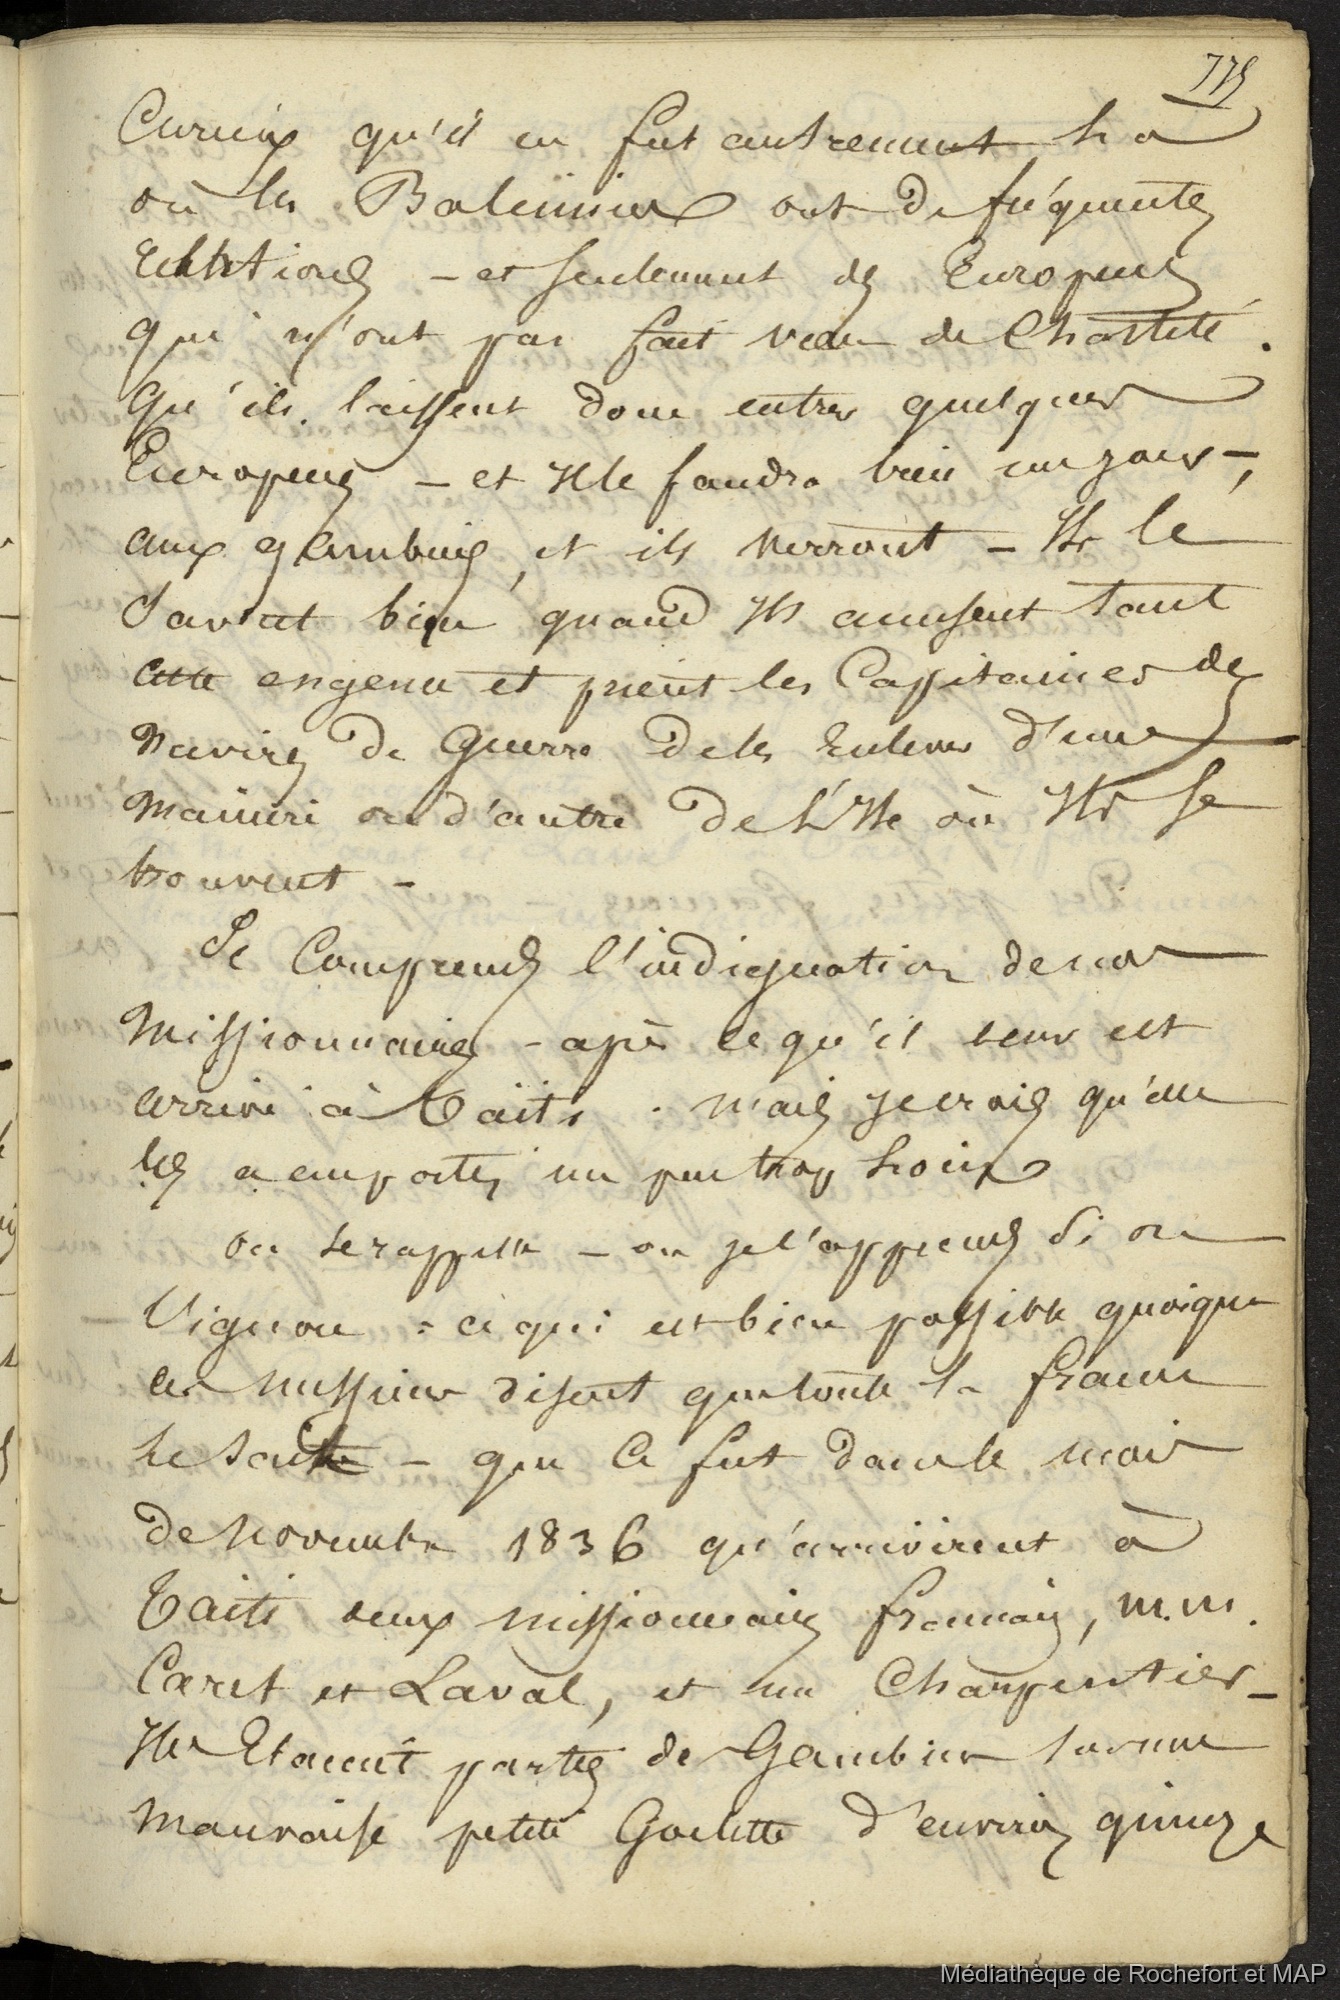 775
Curieux qu'il en fut autrement, là
où les Baleiniers ont de fréquentes
relations – et seulement des Européens
qui n'ont pas fait vœu de Chasteté.
Qu'ils laissent donc entrer quelques
Européens – et il le faudra bien un jour –,
aux gambier, et ils verront – Ils le
savent bien quand ils accusent tant
cette engence et prient les Capitaines des
navires de Guerre de les enlever d'une
manière ou d'autre de l'Ile où Ils se
trouvent –
Je Comprends l'indignation de nos
Missionnaires – après ce qu'il leur est
arrivé à Taïti . mais je crois qu'elle
les a emportés un peu trop loin
on se rappelle – ou je l'apprends si on
l'ignore : ce qui est bien possible quoique
ces messieurs disent que toute la france
le sait – que Ce fut dans le mois
de novembre 1836 qu'arrivèrent à
Taïti deux missionnaires français, m.m.
Caret et Laval, et un Charpentier –
Ils Etaient partis de Gambier sur une
mauvaise petite Goelette d'environ quinze
Médiathèque de Rochefort et MAP